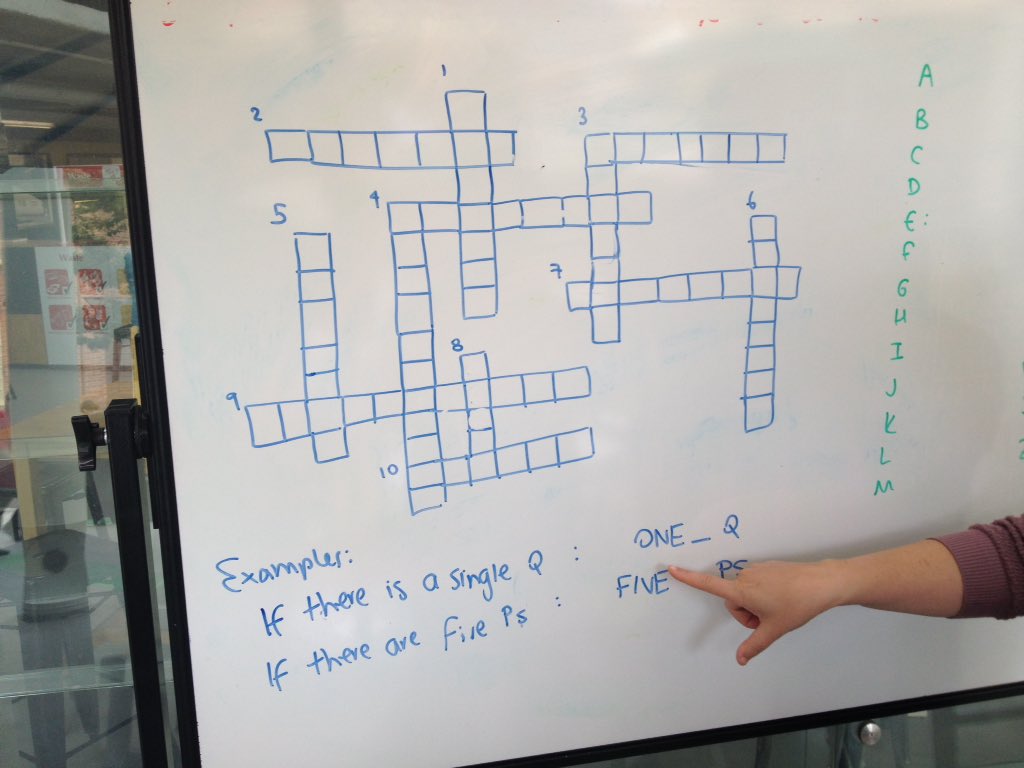 1
2
3
4
5
6
7
8
9
10
A
B
C
D
E:
F
G
H
I
J
K
L
M
Waste
Examples:
If there is a single Q : ONE_Q
If there are five Ps : FIVE PS